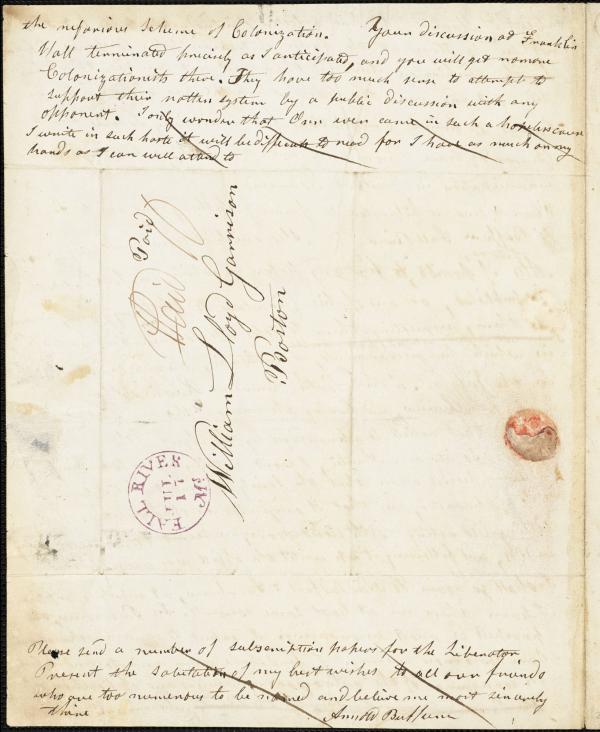 the nefarious scheme of Colonization. Your discussion at Franklin
Hall terminated precisely as I anticipated, and you will get no more
Colonizationists there. They have too much sense to attempt to
support their rotten system by a public discussion with any
opponent. I only wonder that even came in such a hopeless cause
I write in such haste it will be difficult to read for I have as much on my
hands as I can well attend to
Paid
Paid
William Lloyd Garrison
Boston
FALL RIVER Ms.
JUL
17
Please send a number of subscription papers for the Liberator
Present the salutation of my best wishes to all our friends
who are too numerous to be named and believe me most sincerely
thine Arnold Buffum